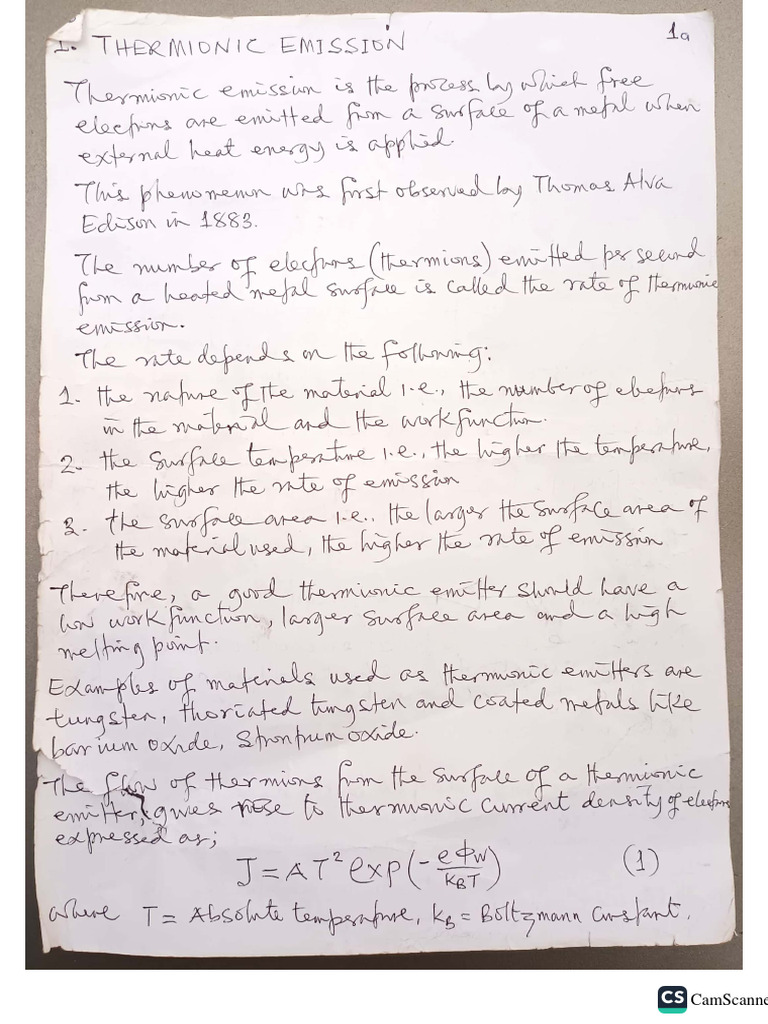 1. THERMIONIC EMISSION
1a
Thermionic emission is the process by which free
electrons are emitted from a surface of a metal when
external heat energy is applied.
This phenomenon was first observed by Thomas Alva
Edison in 1883.
The number of electrons (thermions) emitted per second
from a heated metal surface is called the rate of thermionic
emission.
The rate depends on the following:
1. the nature of the material i.e., the number of electrons
in the material and the work function.
2. the surface temperature i.e., the higher the temperature,
the higher the rate of emission
3. the surface area i.e., the larger the surface area of
the material used, the higher the rate of emission
Therefore, a good thermionic emitter should have a
low work function, larger surface area and a high
melting point.
Examples of materials used as thermionic emitters are
tungsten, thoriated tungsten and coated metals like
barium oxide, strontium oxide.
The flow of thermions from the surface of a thermionic
emitter, gives rise to thermionic current density of electrons
expressed as;
J = AT² exp(-eΦw/kBT) (1)
where T = Absolute temperature, kB = Boltzmann constant,
CS CamScanne